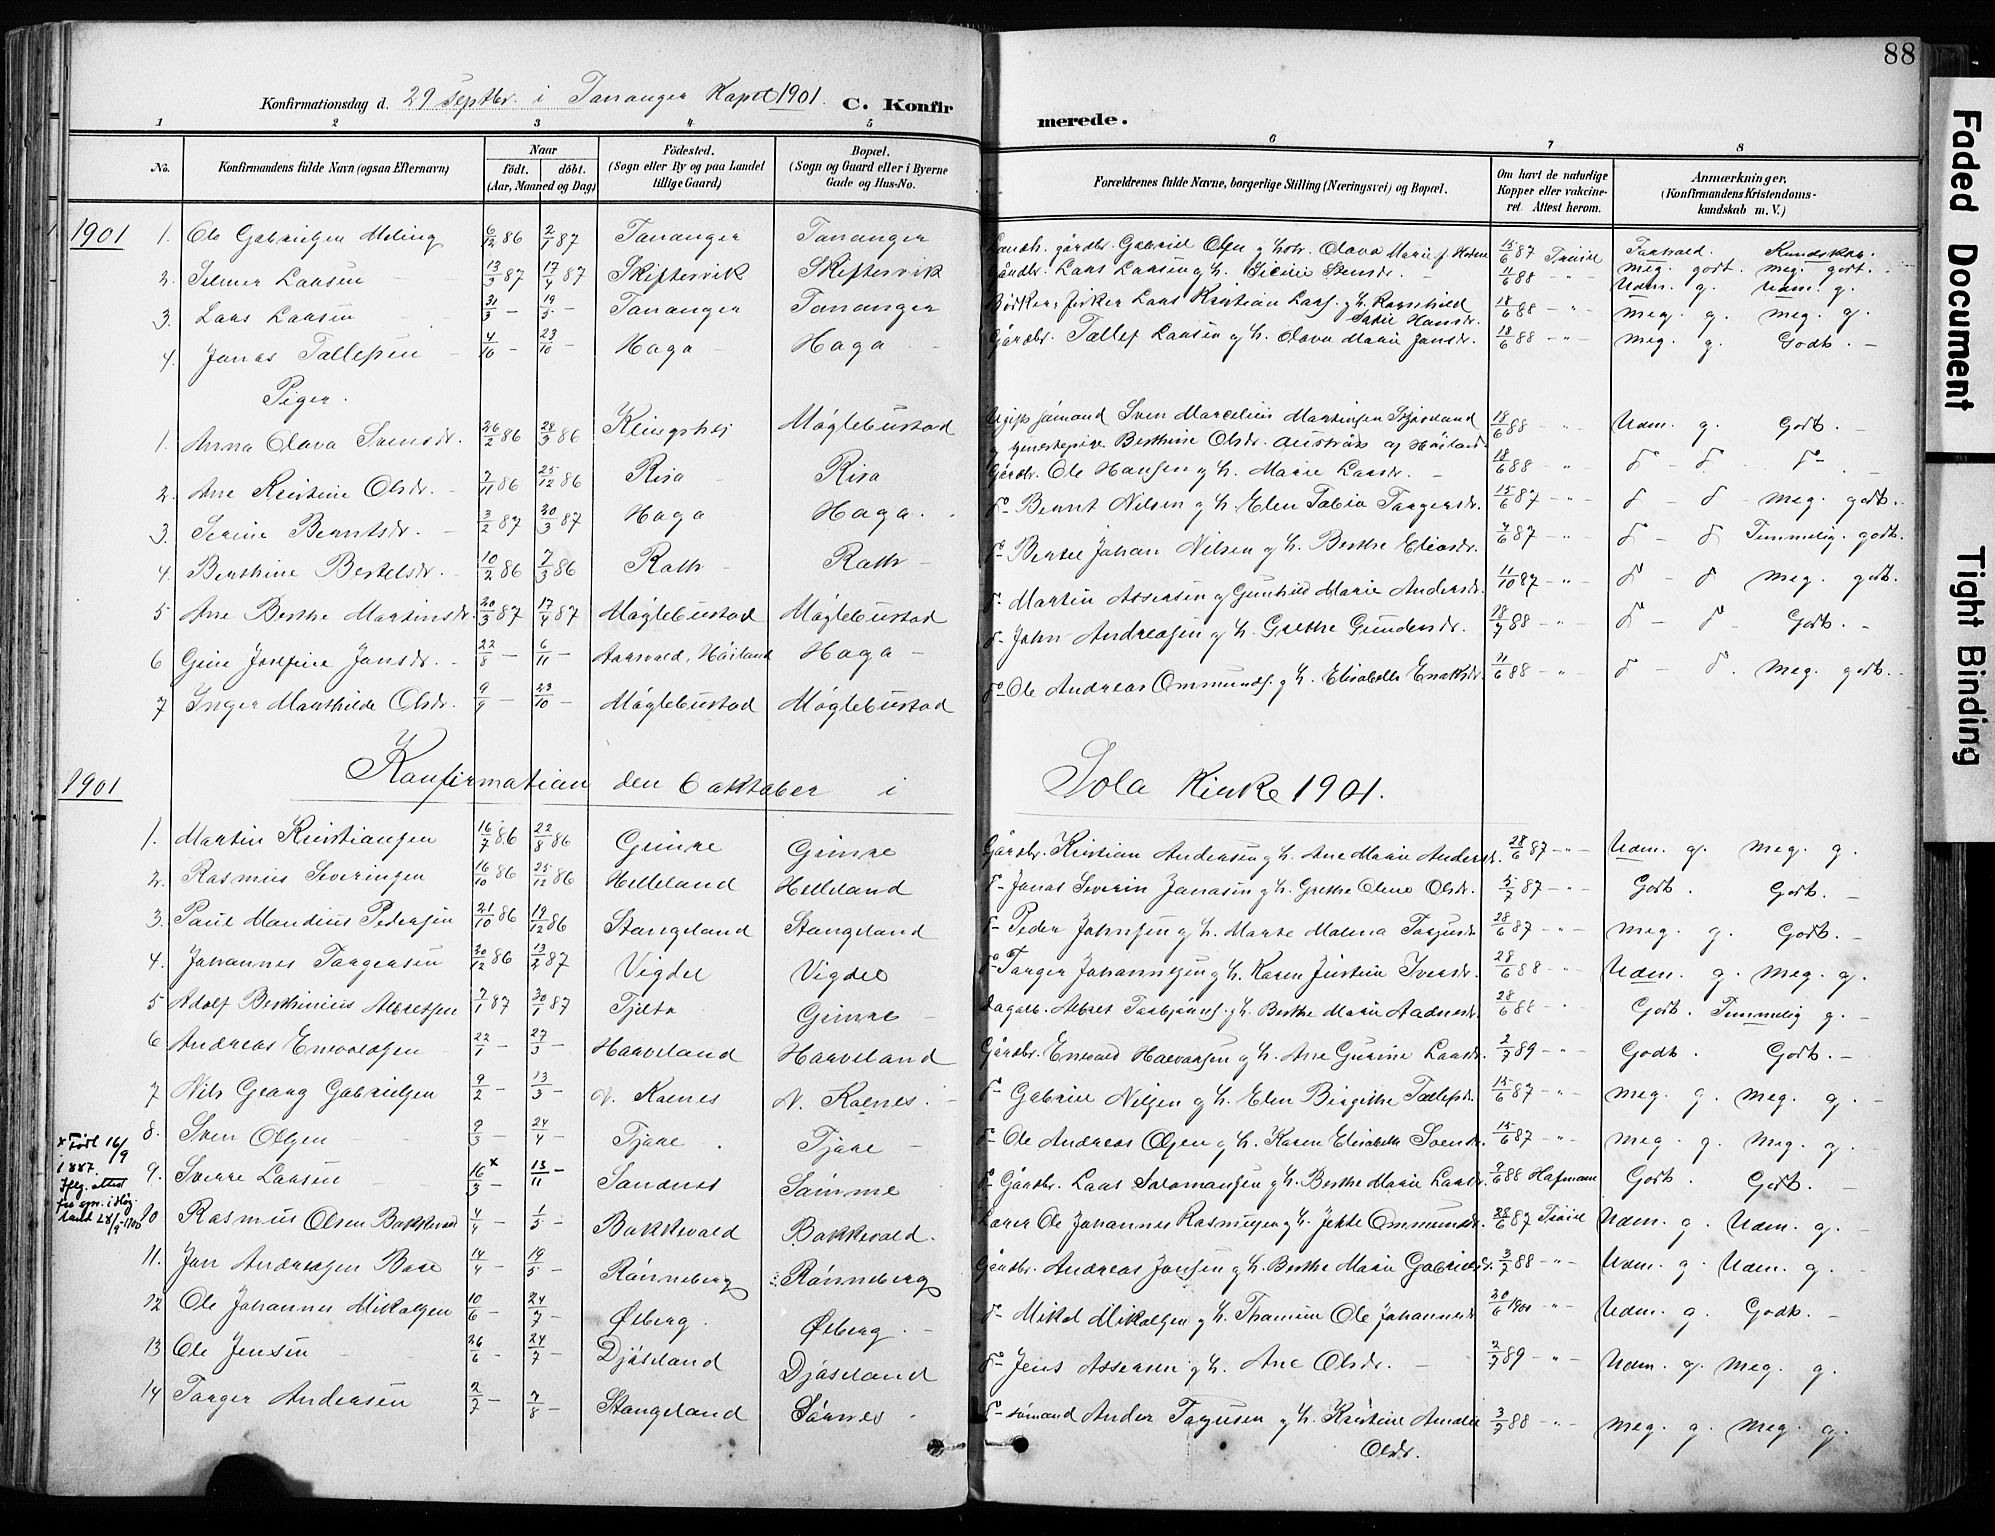 88
Konfirmationsdag d. 29 Septbr. i Tananger Kapel 1901. C. Konfirmerede.
1 2 3 4 5 6 7 8
No. Konfirmandens fulde Navn (ogsaa Efternavn) Naar födt. döbt. (Aar, Maaned og Dag) Födested. (Sogn eller By og paa Landet tillige Gaard) Bopæl. (Sogn og Gaard eller i Byerne Gade og Hus-No. Forældrenes fulde Navne, borgerlige Stilling (Næringsvei) og Bopæl. Om havt de naturlige Kopper eller vakcineret. Attest herom. Anmærkninger, (Konfirmandens Kristendomskundskab m. V.)
1901 1. Ole Gabrielsen Meling 6/12 86 2/1 87 Tananger Tananger gårdbr. Gabriel Olsen g h. Olava Marie 15/6 87 Forhold. Kundskab.
2. Selmer Larsen 13/3 87 17/4 87 Skiftesvik Skiftesvik Gårdbr. Lars Larsen g h. 11/6 88 meg. godt. meg. godt.
3. Lars Larsen 31/3 - 19/5 - Tananger Tananger Lars Kristian Lars. g h. Ragnhild Hansdr. 18/6 88 meg. g. meg. g.
4. Jonas Tollefsen 4/10 - 23/10 - Haga Haga Gårdbr. Tollef Larsen g h. Olava Marie Jonsdr. 18/6 88 meg. g. Godt.
Piger.
1. Anna Olava Svensdr. 26/2 86 28/3 86 Myglebustad Sven Marcelius Martinsen og Berthine Olsdr. 18/6 88 Udm. g. Godt.
2. Ane Kristine Olsdr. 7/11 86 25/12 86 Risa Risa Gårdbr. Ole Hansen g h. Marie Larsdr. 18/6 88
3. Serine Berntsdr. 3/2 87 20/3 87 Haga Haga. Bernt Nilsen g h. Elen Tobia Torgersdr. 15/6 87 meg. godt.
4. Berthine Bertelsdr. 10/2 86 7/3 86 Roth Roth Bertel Johan Nilsen g h. Berthe Eliasdr. 7/6 87 Temmelig godt.
5 Ane Berthe Martinsdr. 20/3 87 17/4 87 Myglebustad Myglebustad Martin Assersen og Gunhild Marie Andersdr. 11/10 87 meg. godt.
6 Gine Josefine Jansdr. 22/8 - 6/11 - Aarsvold, Høiland Haga John Andreasen g h. Grethe Gundersdr. 18/7 88 Godt.
7 Inger Marthilde Olsdr. 9/9 - 23/10 - Myglebustad Myglebustad Ole Andreas Ommunds. g h. Elisabeth 11/6 88 meg. godt.
1901 Konfirmation den 6 oktober i Sola Kirke 1901.
1. Martin Kristiansen 16/7 86 22/8 86 Gimre Gimre Gårdbr. Kristian Andersen g h. Ane Marie Andersdr. 28/6 87 Udm. g. meg. g.
2. Rasmus Severinsen 16/10 86 25/12 86 Helleland Helleland Jonas Severin Jonasen g h. Grethe Oline Olsdr. 5/7 87 Godt. Godt.
3. Paul Mandius Pedersen 21/10 86 19/12 86 Stangeland Stangeland Peder Johnsen g h. Marte Malena 28/6 87 meg. g. Godt.
4. Johannes Torgersen 20/12 86 13/2 87 Vigdel Vigdel Torger Johannesen g h. Karen Justine Iversdr. 28/6 88 Udm. g. meg. g.
5 Adolf Berthinius Albretsen 7/1 87 30/1 87 Tjelta Gimre Albret Torbjørns. g h. Berthe Marie Aadnesdr. 28/6 88 Godt. Temmelig g.
6 Andreas Enevoldsen 22/1 - 27/3 - Harveland Harveland Gårdbr. Enevold Halvorsen g h. Ane Gurine Larsdr. 2/7 89 Godt. Godt.
7 Nils Georg Gabrielsen 9/2 - 13/3 - N. Kolnes N. Kolnes. Gabriel Nilsen g h. Elen Birgithe Tollefsdr. 15/6 87 meg. g. meg. g.
8. Sven Olsen 9/3 - 24/4 - Tjøre. Tjøre Ole Andreas Olsen g h. Karen Elisabeth Svensdr. 15/6 87 meg. g. meg. g.
x Født 16/9 1887. Iflg. attest
9. Sverre Larsen 16/3 x - 13/11 - Sandnes Sømme Gårdbr. Lars Salomonsen g h. Berthe Marie Larsdr. 9/6 88 Hafmann Godt. Godt.
10 Rasmus Olsen Bakkevold 4/4 - 1/5 - Bakkevold Bakkevold. Lærer Ole Johannes Rasmussen g h. Jette Ommundsdr. 28/6 87 Udm. g. Udm. g.
11. Jan Andreasen Bore 14/4 - 19/5 - Rønneberg Rønneberg Gårdbr. Andreas Jonsen g h. Berthe Marie Gabrielsdr. 3/7 88 Udm. g. Udm. g.
12 Ole Johannes Mikalsen 10/6 - 24/7 - Øsberg. Øsberg. Mikal Mikalsen g h. Ole Johannesdr. 20/6 1901 Udm. g. Godt.
13 Ole Jensen 26/6 - 24/7 - Djøseland Djøseland Jens Assersen g h. Ane Olsdr. 2/7 89 Udm. g. meg. g.
14 Torger Andersen 2/7 - 7/8 - Stangeland Sørnes sømand g h. Kristine Amalie Olsdr. 3/7 88 meg. g. meg. g.
Faded Document
Tight Binding